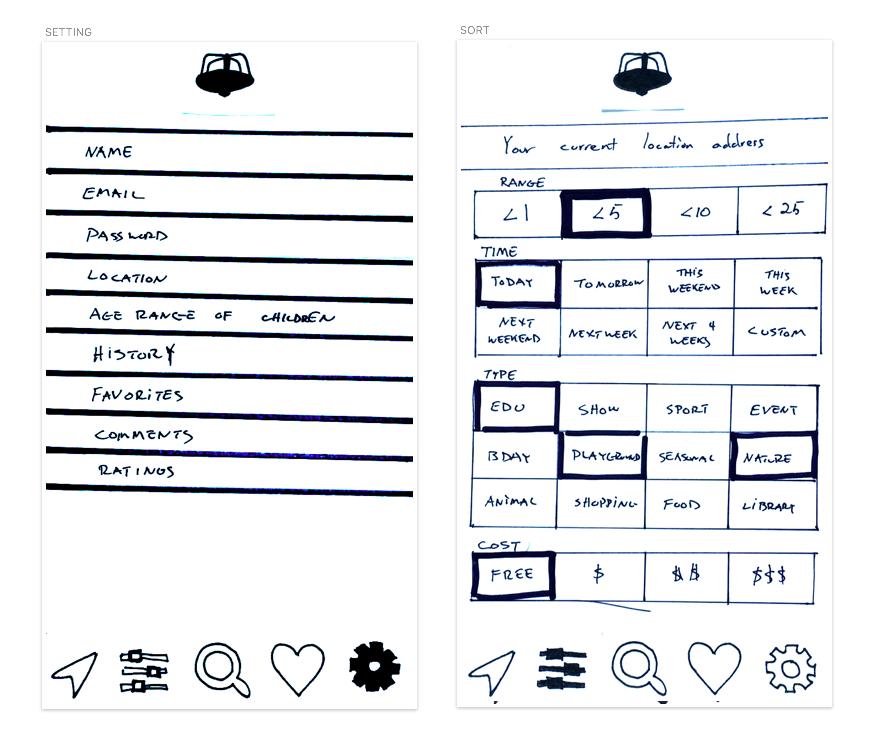 SETTING
NAME
EMAIL
PASSWORD
LOCATION
AGE RANGE OF CHILDREN
HISTORY
FAVORITES
COMMENTS
RATINGS
SORT
Your current location address
RANGE
<1 <5 <10 <25
TIME
TODAY TOMORROW THIS WEEKEND THIS WEEK
NEXT WEEKEND NEXT WEEK NEXT 4 WEEKS CUSTOM
TYPE
EDU SHOW SPORT EVENT
BDAY PLAYGROUND SEASONAL NATURE
ANIMAL SHOPPING FOOD LIBRARY
COST
FREE $ $$ $$$